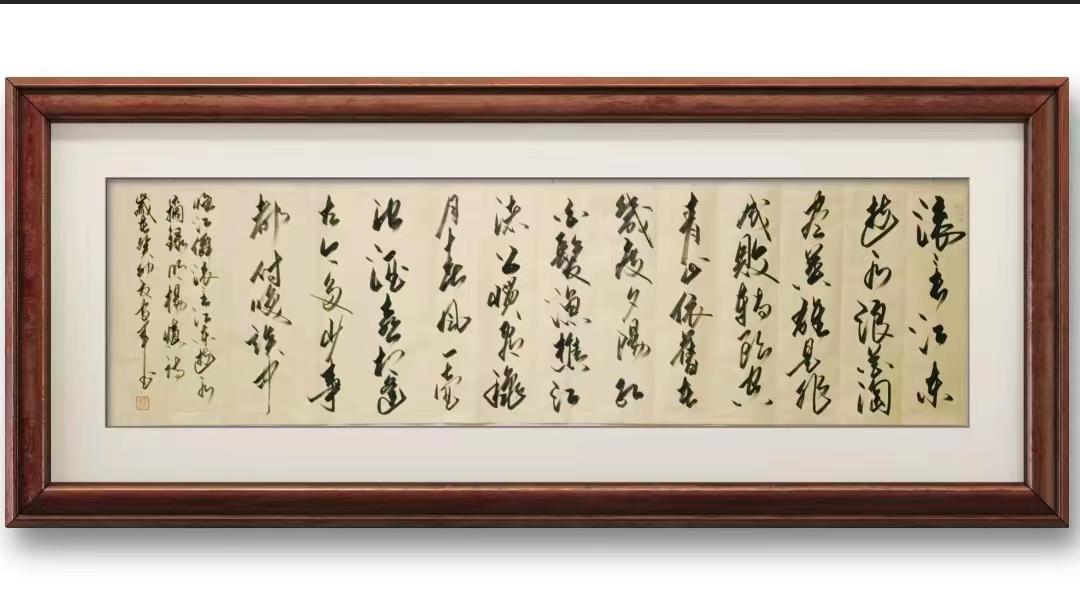 滚滚长江东
逝水浪花淘
尽英雄是非
成敗轉頭空
青山依舊在
幾度夕陽红
白髮漁樵江
渚上惯看秋
月春风一壶
浊酒喜相逢
古今多少事
都付笑谈中
临江仙滚滚长江东逝水
摘録明楊慎詩
歲在癸卯 書